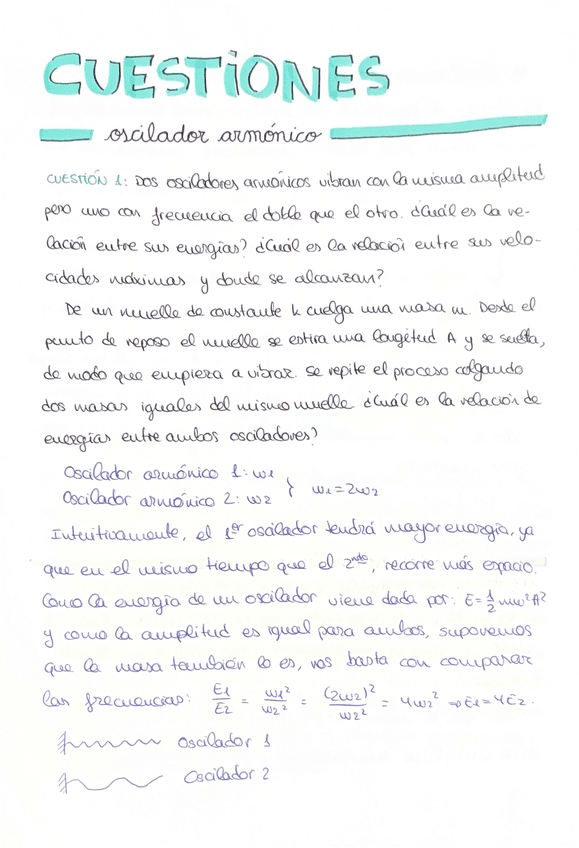 CUESTIONES
oscilador armónico
CUESTIÓN 1: Dos osciladores armónicos vibran con la misma amplitud
pero uno con frecuencia el doble que el otro. ¿Cuál es la re-
lación entre sus energías? ¿Cuál es la relación entre sus velo-
cidades máximas y donde se alcanzan?
De un muelle de constante k cuelga una masa m. Desde el
punto de reposo el muelle se estira una longitud A y se suelta,
de modo que empieza a vibrar. Se repite el proceso colgando
dos masas iguales del mismo muelle ¿Cuál es la relación de
energías entre ambos osciladores?
Oscilador armónico 1: ω1
Oscilador armónico 2: ω2 } ω1=2ω2
Intuitivamente, el 1er oscilador tendrá mayor energía, ya
que en el mismo tiempo que el 2ndo, recorre más espacio.
Como la energía de un oscilador viene dada por: E=½mω²A²
y como la amplitud es igual para ambos, suponemos
que la masa también lo es, nos basta con comparar
las frecuencias: E1/E2 = ω1²/ω2² = (2ω2)²/ω2² = 4ω2² ⇒ E1=4E2.
Oscilador 1
Oscilador 2